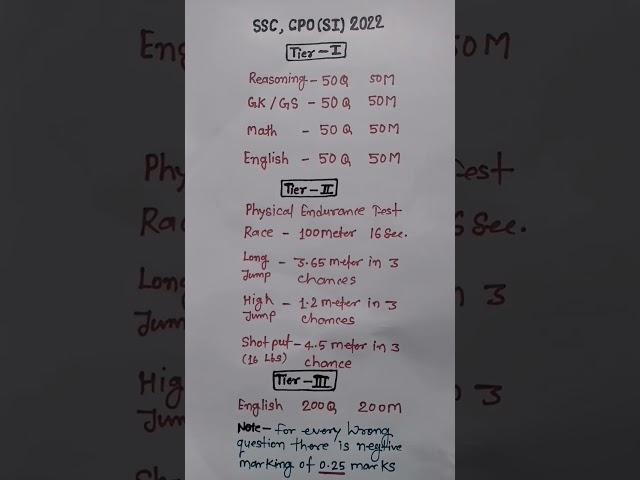 SSC, CPO (SI) 2022
Tier - I
Reasoning - 50Q 50M
GK/GS - 50Q 50M
Math - 50Q 50M
English - 50Q 50M
Tier - II
Physical Endurance Test
Race - 100meter 16 Sec.
Long Jump - 3.65 meter in 3 chances
High Jump - 1.2 meter in 3 chances
Shot put - 4.5 meter in 3
(16 Lbs) chance
Tier - III
English 200Q 200M
Note - For every Wrong
question there is negtive
marking of 0.25 marks